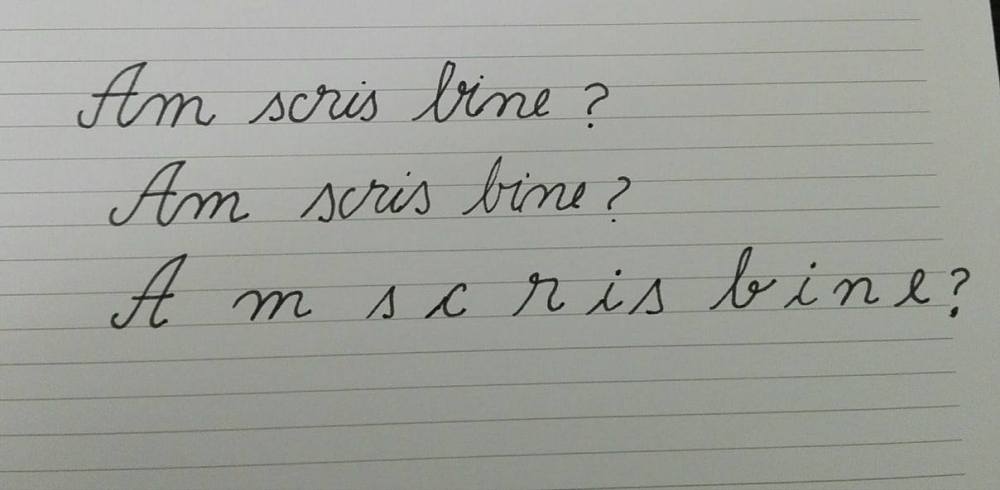 Am scris bine?
Am scris bine?
A m s c r i s b i n e?